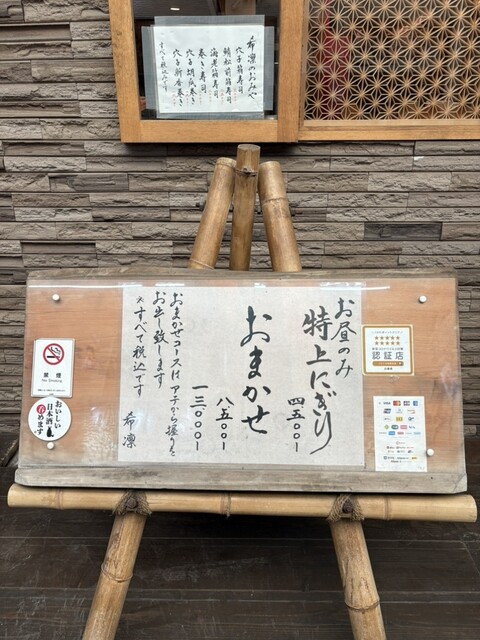 希凛のおみや
穴子箱寿司
海老箱寿司
巻き寿司
穴子胡瓜巻き
穴子新香巻き
すべて税込みです
お昼のみ
特上にぎり
四五〇〇ー
おまかせ
八五〇〇ー
一三〇〇〇ー
おまかせコースはアテから握りを
お出し致します
※すべて税込です
希凛
禁煙
No Smoking
おいしい
日本酒
呑めます
認証店